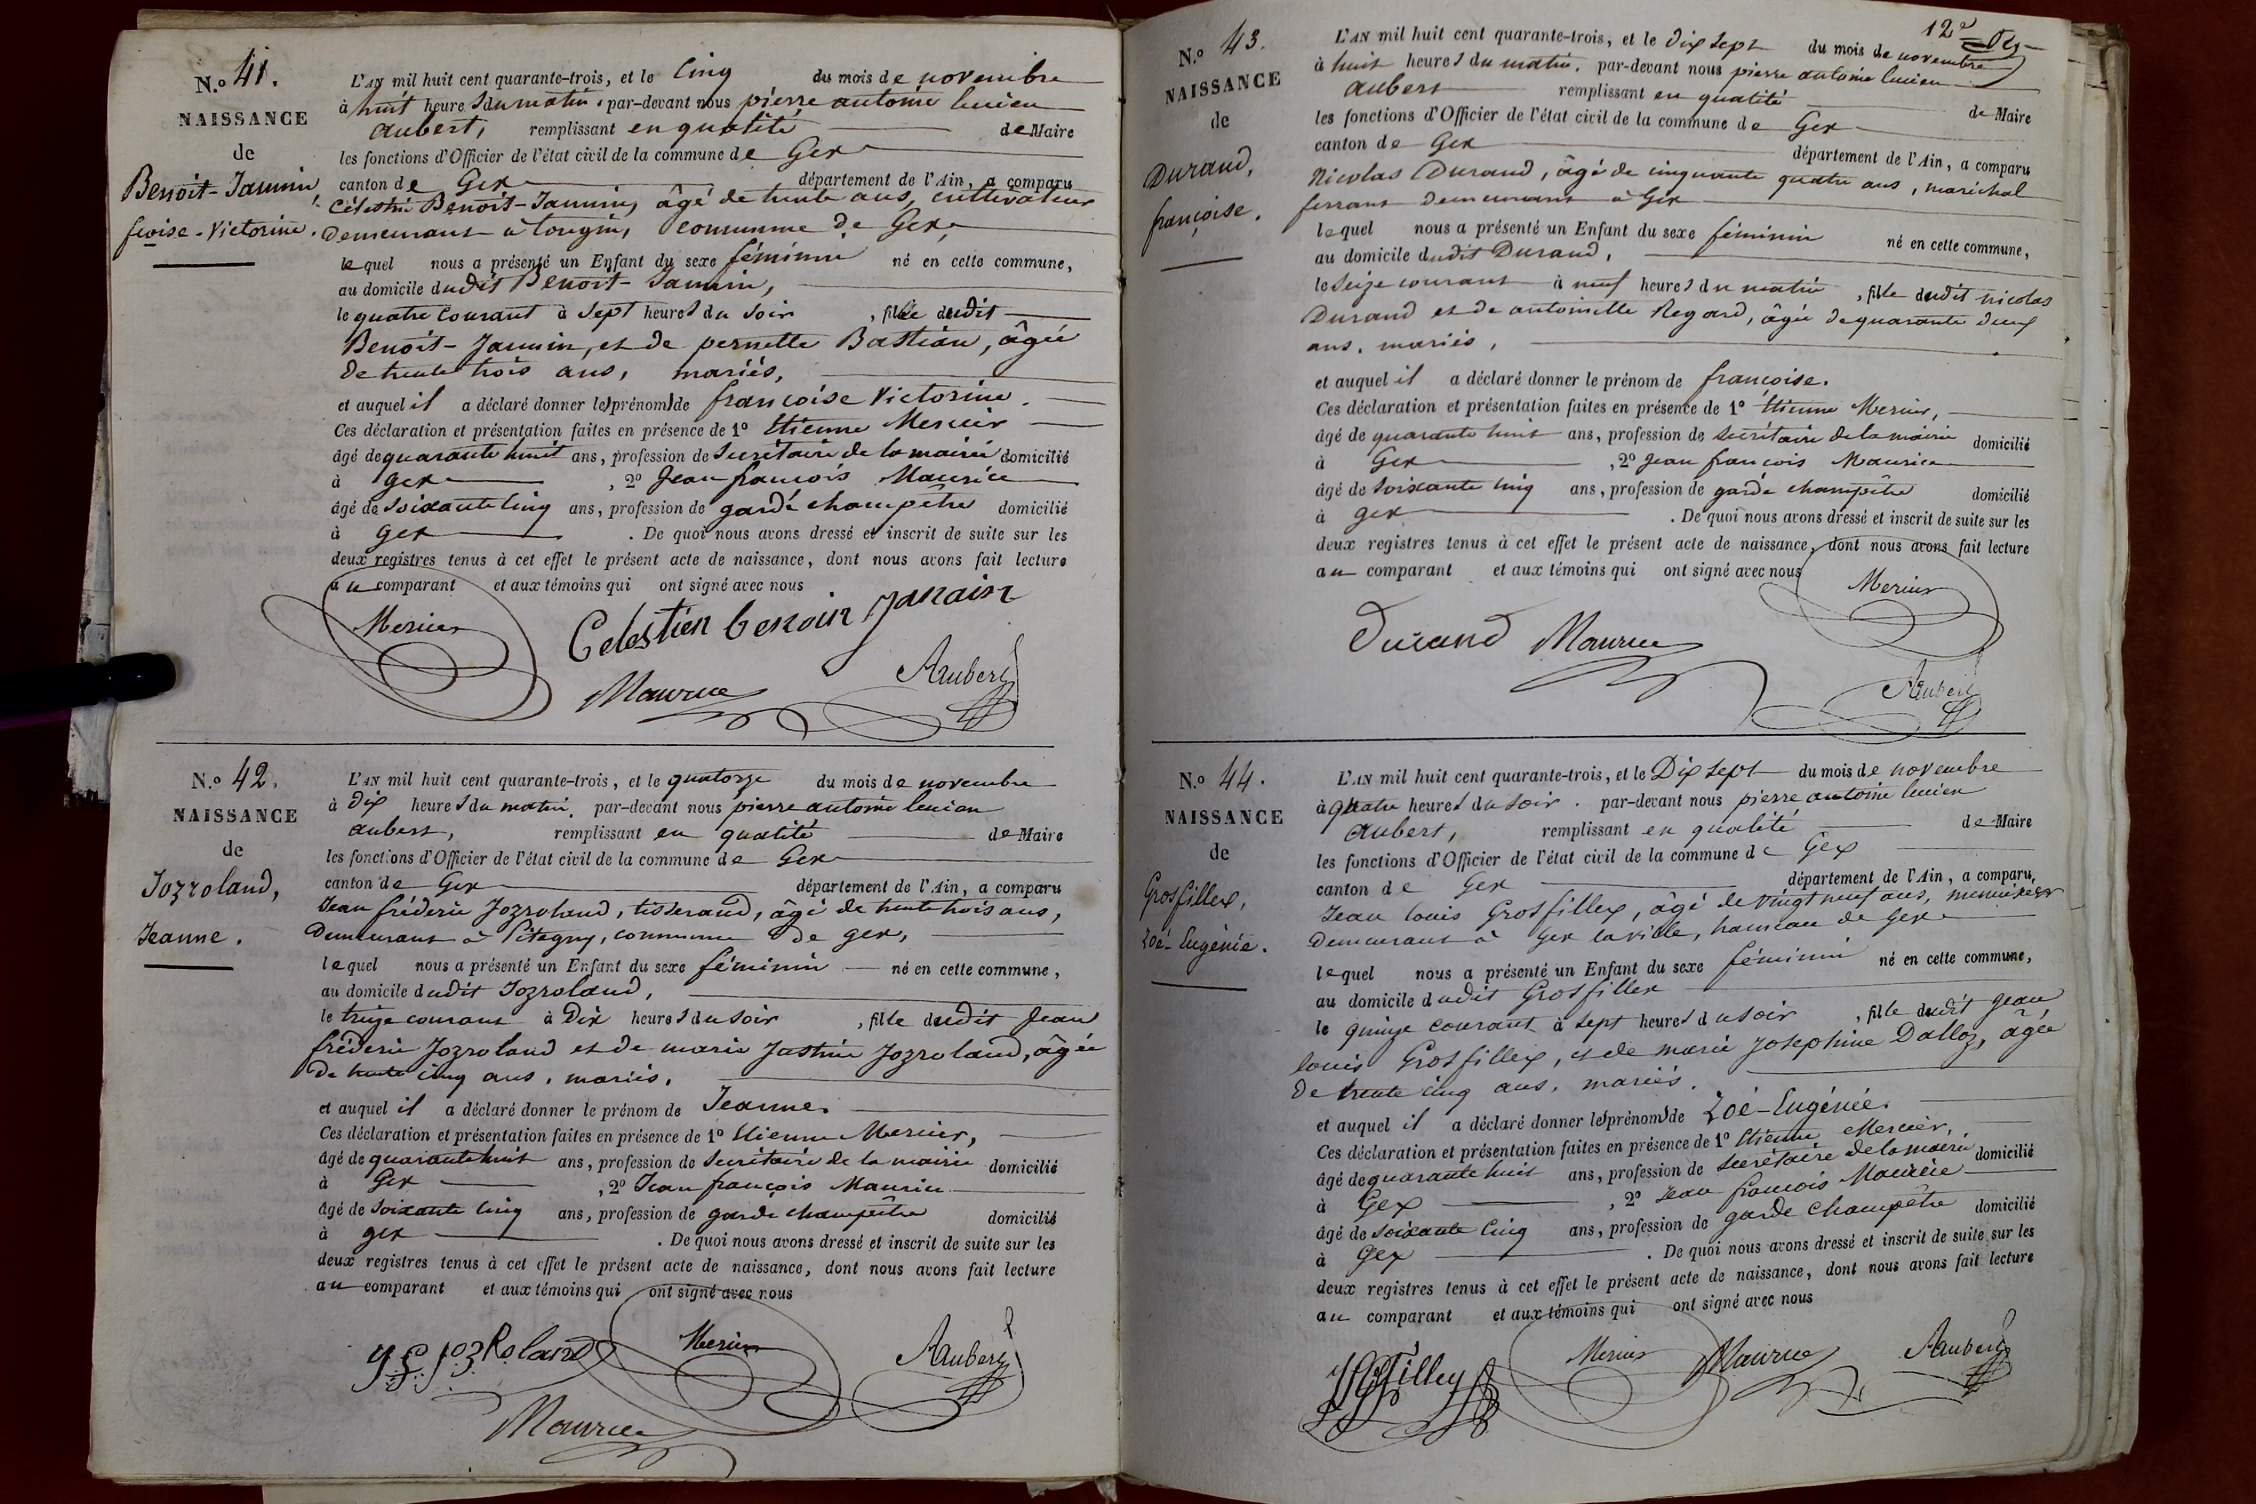 N.º 41.
NAISSANCE
de
Benoit-Jannin,
fçoise-Victorine.
L'AN mil huit cent quarante-trois, et le cinq du mois de novembre
à huit heures du matin, par-devant nous pierre antoine lucien
aubert, remplissant en qualité de Maire
les fonctions d'Officier de l'état civil de la commune de Gex
canton de Gex département de l'Ain, a comparu
Célestin Benoit-Jannin, âgé de trente ans, cultivateur
demeurant à tougin, commune de Gex,
lequel nous a présenté un Enfant du sexe féminin né en cette commune,
au domicile dudit Benoit-Jannin,
le quatre courant à sept heures du soir, fille dudit
Benoit-Jannin, et de pernette Bastian, âgée
de trente trois ans, mariés,
et auquel il a déclaré donner les prénoms de françoise Victorine.
Ces déclaration et présentation faites en présence de 1º Etienne Mercier
âgé de quarante huit ans, profession de Secrétaire de la mairie domicilié
à gex, 2º Jean françois Maurice
âgé de soixante cinq ans, profession de garde champêtre domicilié
à gex. De quoi nous avons dressé et inscrit de suite sur les
deux registres tenus à cet effet le présent acte de naissance, dont nous avons fait lecture
au comparant et aux témoins qui ont signé avec nous
Mercier Celestien benoin Janain
Maurice AAubert
N.º 42.
NAISSANCE
de
Jozroland,
Jeanne.
L'AN mil huit cent quarante-trois, et le quatorze du mois de novembre
à dix heures du matin, par-devant nous pierre antoine lucien
aubert, remplissant en qualité de Maire
les fonctions d'Officier de l'état civil de la commune de Gex
canton de Gex département de l'Ain, a comparu
Jean fréderic Jozroland, tisserand, âgé de trente trois ans,
demeurant à Pitegny, commune de gex,
lequel nous a présenté un Enfant du sexe féminin né en cette commune,
au domicile dudit Jozroland,
le treize courant à Dix heures du soir, fille dudit Jean
fréderic Jozroland et de marie Justine Jozroland, âgée
de trente cinq ans, mariés.
et auquel il a déclaré donner le prénom de Jeanne.
Ces déclaration et présentation faites en présence de 1º Etienne Mercier,
âgé de quarante huit ans, profession de Secrétaire de la mairie domicilié
à Gex, 2º Jean françois Maurice
âgé de soixante cinq ans, profession de garde champêtre domicilié
à gex. De quoi nous avons dressé et inscrit de suite sur les
deux registres tenus à cet effet le présent acte de naissance, dont nous avons fait lecture
au comparant et aux témoins qui ont signé avec nous
J F JozRoland Mercier AAubert
Maurice
12e
N.º 43.
NAISSANCE
de
Durand,
françoise.
L'AN mil huit cent quarante-trois, et le dix sept du mois de novembre
à huit heures du matin, par-devant nous pierre antoine lucien
aubert remplissant en qualité de Maire
les fonctions d'Officier de l'état civil de la commune de Gex
canton de Gex département de l'Ain, a comparu
Nicolas Durand, âgé de cinquante quatre ans, maréchal
ferrant demeurant à Gex
lequel nous a présenté un Enfant du sexe féminin né en cette commune,
au domicile dudit Durand,
le seize courant à neuf heures du matin, fille dudit nicolas
Durand et de antoinette Regard, âgée de quarante deux
ans, mariés,
et auquel il a déclaré donner le prénom de françoise.
Ces déclaration et présentation faites en présence de 1º Etienne Mercier,
âgé de quarante huit ans, profession de secrétaire de la mairie domicilié
à Gex, 2º Jean françois Maurice
âgé de soixante cinq ans, profession de garde champêtre domicilié
à gex. De quoi nous avons dressé et inscrit de suite sur les
deux registres tenus à cet effet le présent acte de naissance, dont nous avons fait lecture
au comparant et aux témoins qui ont signé avec nous
Mercier
Durand Maurice
AAubert
N.º 44.
NAISSANCE
de
Grosfillex,
Zoé-Eugénie.
L'AN mil huit cent quarante-trois, et le Dix sept du mois de novembre
à quatre heures du soir. par-devant nous pierre antoine lucien
aubert, remplissant en qualité de Maire
les fonctions d'Officier de l'état civil de la commune de Gex
canton de Gex département de l'Ain, a comparu,
Jean louis Grosfillex, âgé de vingt neuf ans, menuisier
demeurant à Gex la ville, hameau de Gex
lequel nous a présenté un Enfant du sexe féminin né en cette commune,
au domicile dudit Grosfillex
le quinze courant à sept heures du soir, fille dudit Jean
louis Grosfillex, et de marie Josephine Dalloz, âgée
de trente cinq ans, mariés.
et auquel il a déclaré donner les prénoms de Zoé-Eugénie.
Ces déclaration et présentation faites en présence de 1º Etienne Mercier,
âgé de quarante huit ans, profession de secrétaire de la mairie domicilié
à Gex, 2º Jean françois Maurice
âgé de soixante cinq ans, profession de garde champêtre domicilié
à Gex. De quoi nous avons dressé et inscrit de suite sur les
deux registres tenus à cet effet le présent acte de naissance, dont nous avons fait lecture
au comparant et aux témoins qui ont signé avec nous
Mercier Maurice AAubert